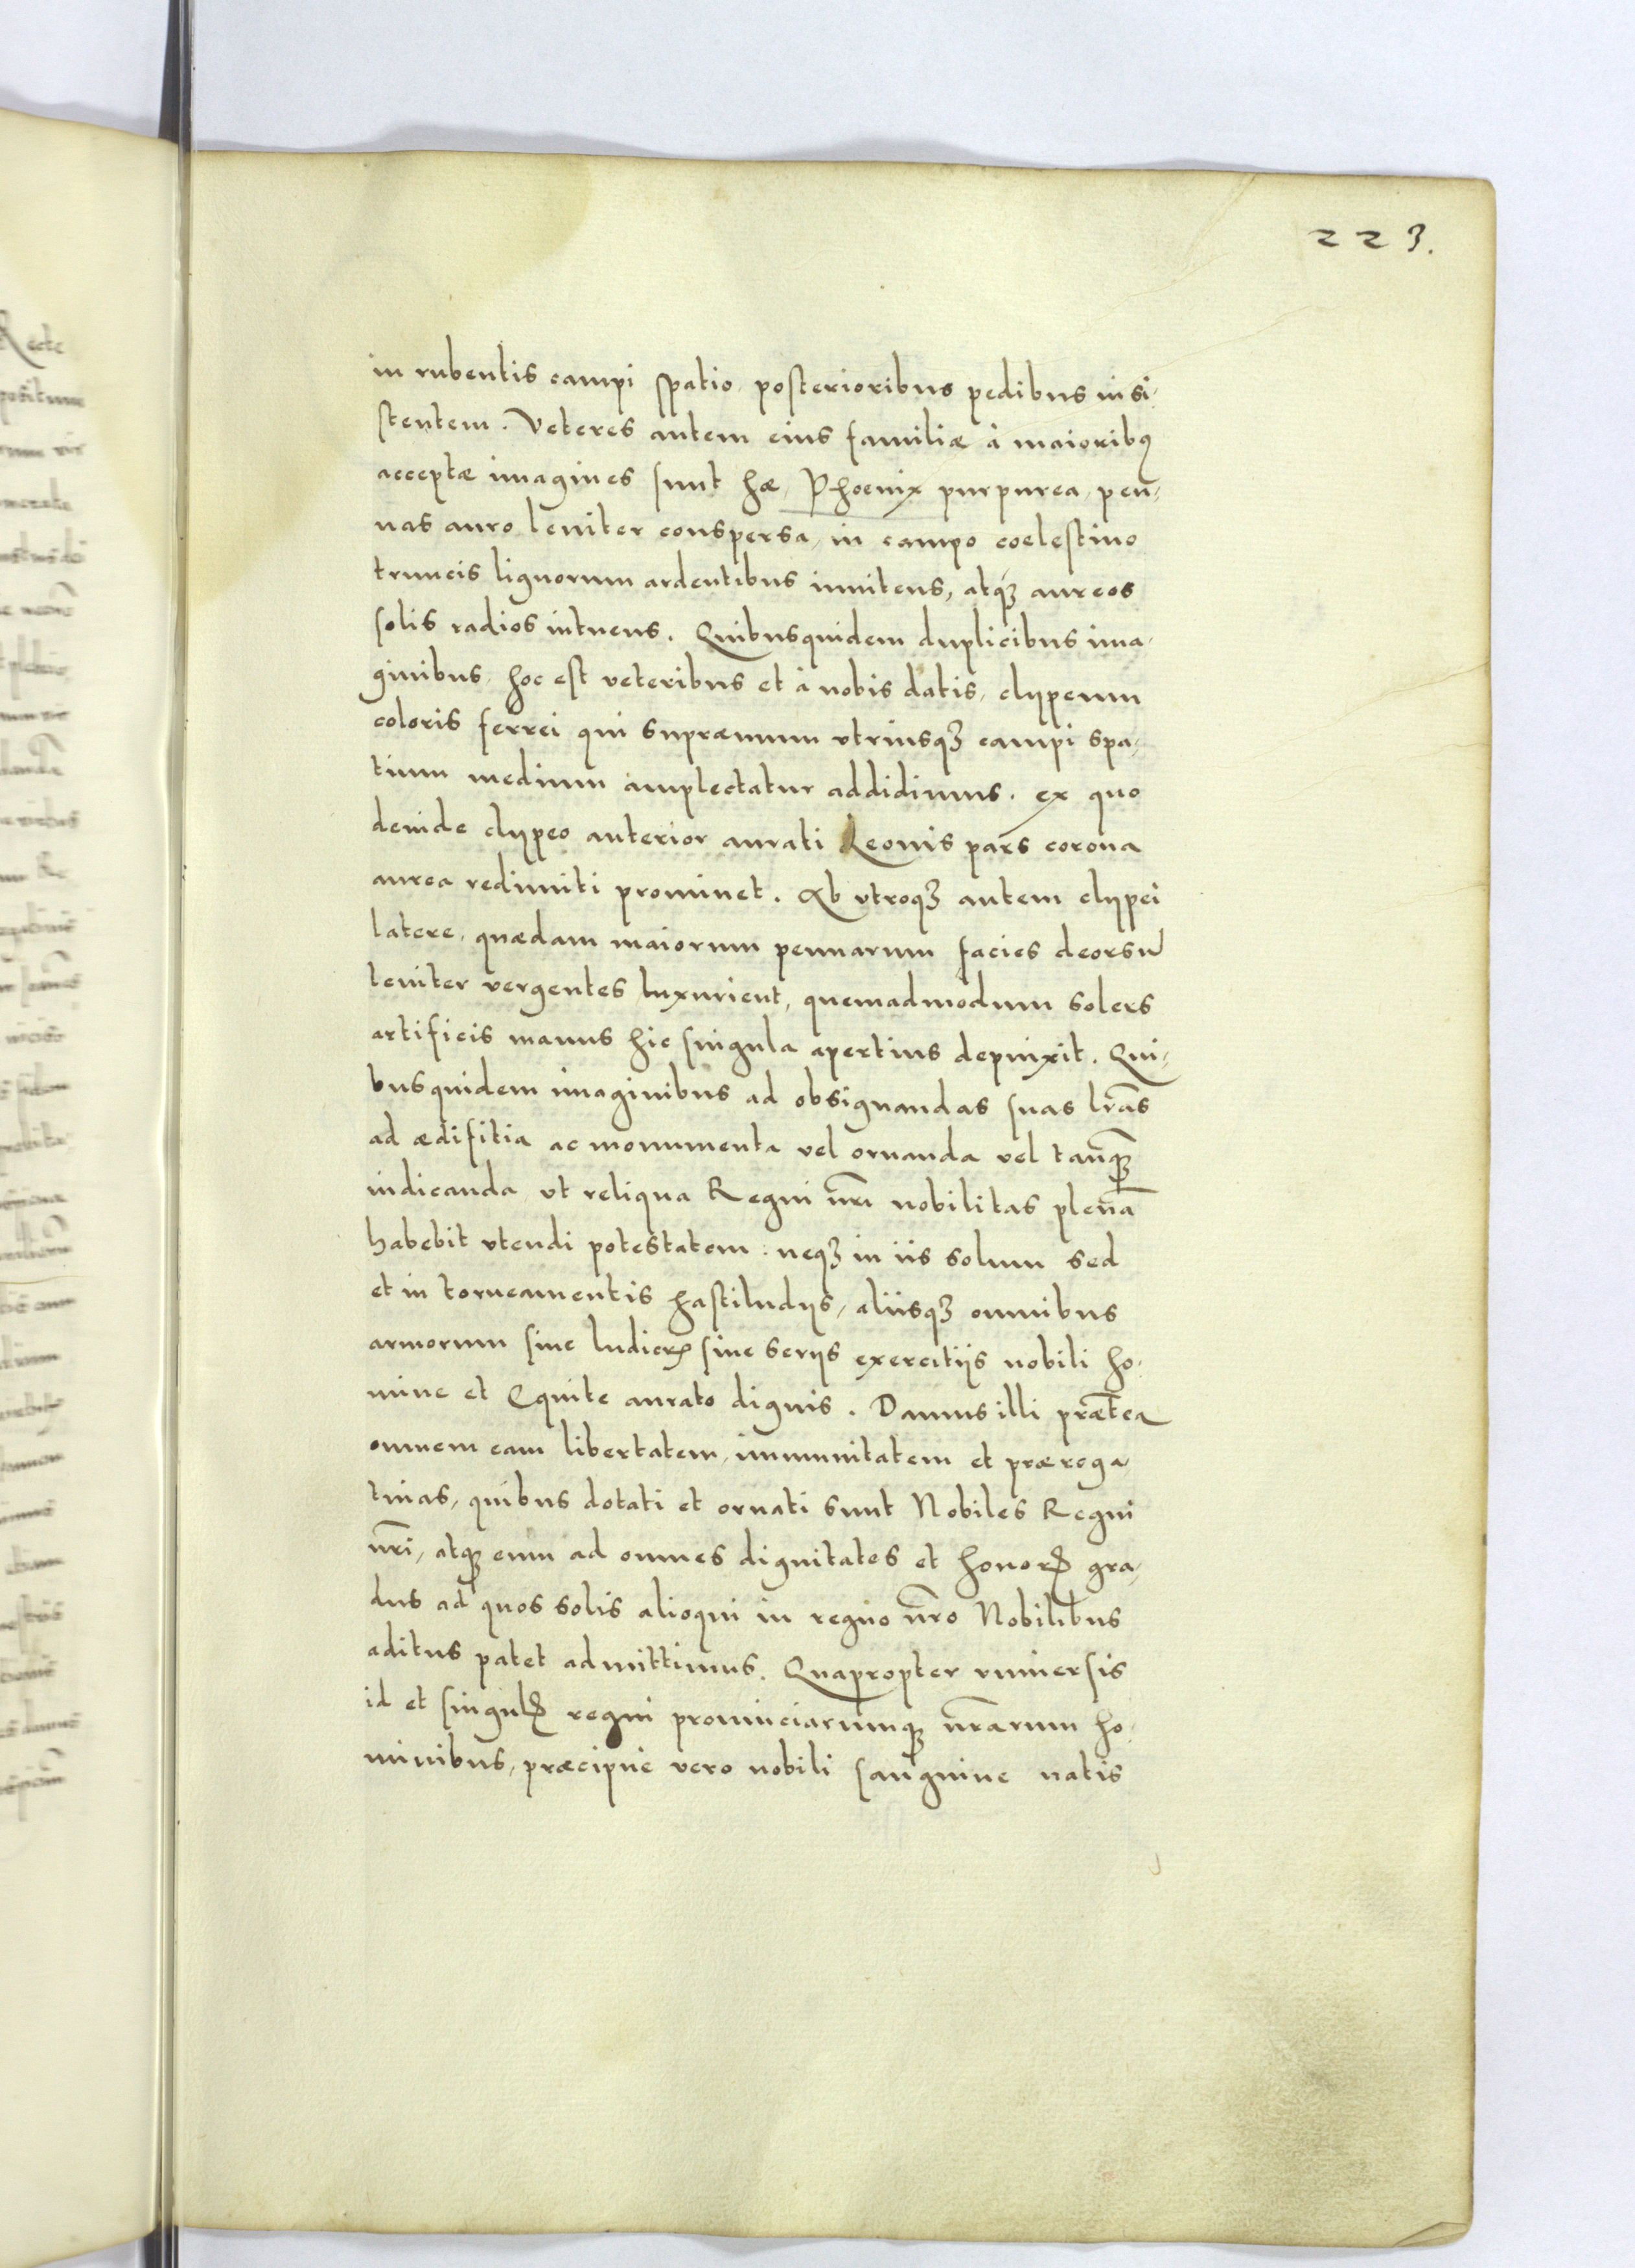 223.
in rubentis campi spatio, posterioribus pedibus insi-
stentem. Veteres autem eius familiæ à maioribꝰ
acceptæ imagines sunt hæ, Phoenix purpurea, pen-
nas auro leniter conspersa, in campo coelestino
truncis lignorum ardentibus innitens, atqꝫ aureos
solis radios intuens. Quibusquidem duplicibus ima-
ginibus, hoc est veteribus et à nobis datis, clypeum
coloris ferrei qui supræmum vtriusqꝫ campi spa-
tium medium amplectatur addidimus. ex quo
deinde clypeo anterior aurati Leonis pars corona
aurea redimiti prominet. Ab vtroqꝫ autem clypei
latere, quædam maiorum pennarum facies deorsū
leniter vergentes luxurient, quemadmodum solers
artificis manus hic singula apertius depinxit. Qui-
busquidem imaginibus ad obsignandas suas lr̄as
ad ædifitia ac monumenta vel ornanda vel tanqꝫ
indicanda, vt reliqua Regni nr̄i nobilitas plenā
habebit vtendi potestatem: neqꝫ in iis solum sed
et in torneamentis hastiludijs, aliisqꝫ omnibus
armorum siue ludicrꝭ siue serijs exercitijs nobili ho-
mine et Equite aurato dignis. Damus illi præt̄ea
omnem eam libertatem, immunitatem et præroga-
tiuas, quibus dotati et ornati sunt Nobiles Regni
nr̄i, atqꝫ eum ad omnes dignitates et honorꝭ gra-
dus ad quos solis alioqui in regno nr̄o Nobilibus
aditus patet admittimus. Quapropter vniuersis
id et singulꝭ regni prouinciarumqꝫ nr̄arum ho-
minibus, præcipue vero nobili sanguine natis